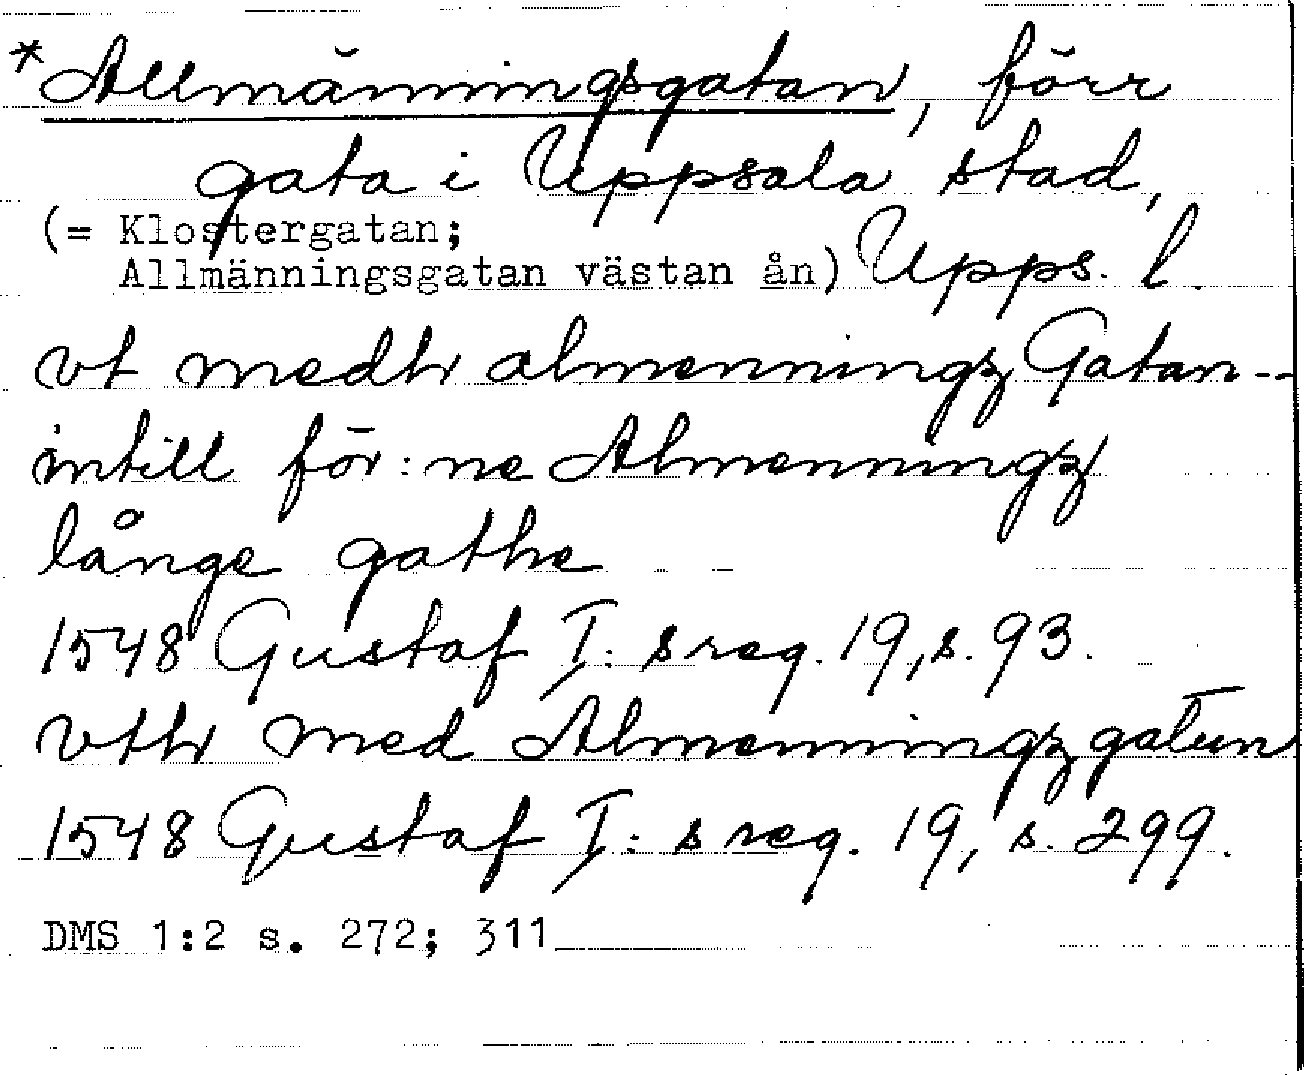 *Allmänningsgatan, förr
gata i Uppsala stad,
(= Klostergatan;
Allmänningsgatan västan ån) Upps. l.
vt medh almenningz Gatan--
intill för:ne Almenningz
långe gathe
1548 Gustaf I:s reg. 19, s. 93.
vth med Almenningz gatun
1548 Gustaf I:s reg. 19, s. 299.
DMS 1:2 s. 272; 311